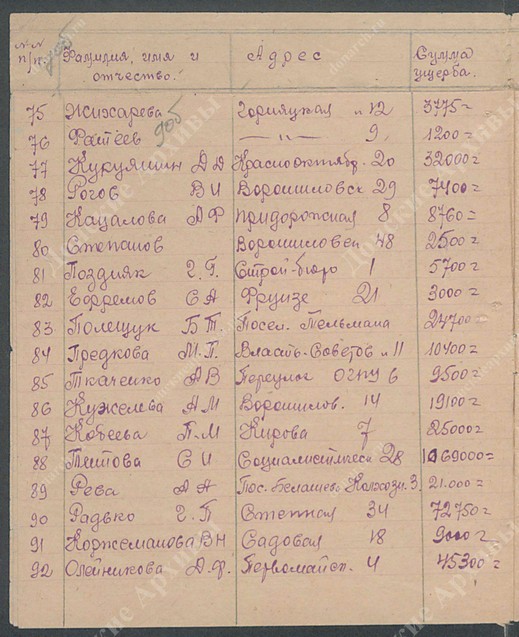 № № п/п. Фамилия, имя и отчество. Адрес Сумма ущерба.
75 Жихарева Горняцкая 12 3775=
76 Фатеев —"— 9 1200=
77 Кукуяшин Д Д Краснооктябр. 20 32000=
78 Рогов В И Ворошиловск 29 7400=
79 Кацалова А Ф Придорожная 8 8760=
80 Степанов Ворошиловск 48 2500=
81 Поздняк Г. Строй-бюро 1 5700=
82 Ефремов С А Фрунзе 21 3000=
83 Полещук Б Т. Посел. Тельмана 24700=
84 Предкова М. П. Власть-Советов 11 10400=
85 Ткаченко А В Переулок ОГПУ 6 9500=
86 Кужелева А М Ворошилов. 14 19100=
87 Кобеева П. М Кирова 7 25000=
88 Титова С И Социалистическ 28 69000=
89 Рева А А Пос. Колхозн. 3. 21.000=
90 Радько Г. П Степная 34 72750=
91 Коржеманова В Н Садовая 18 9000=
92 Олейникова Д. Ф. Первомайск. 4 45300=